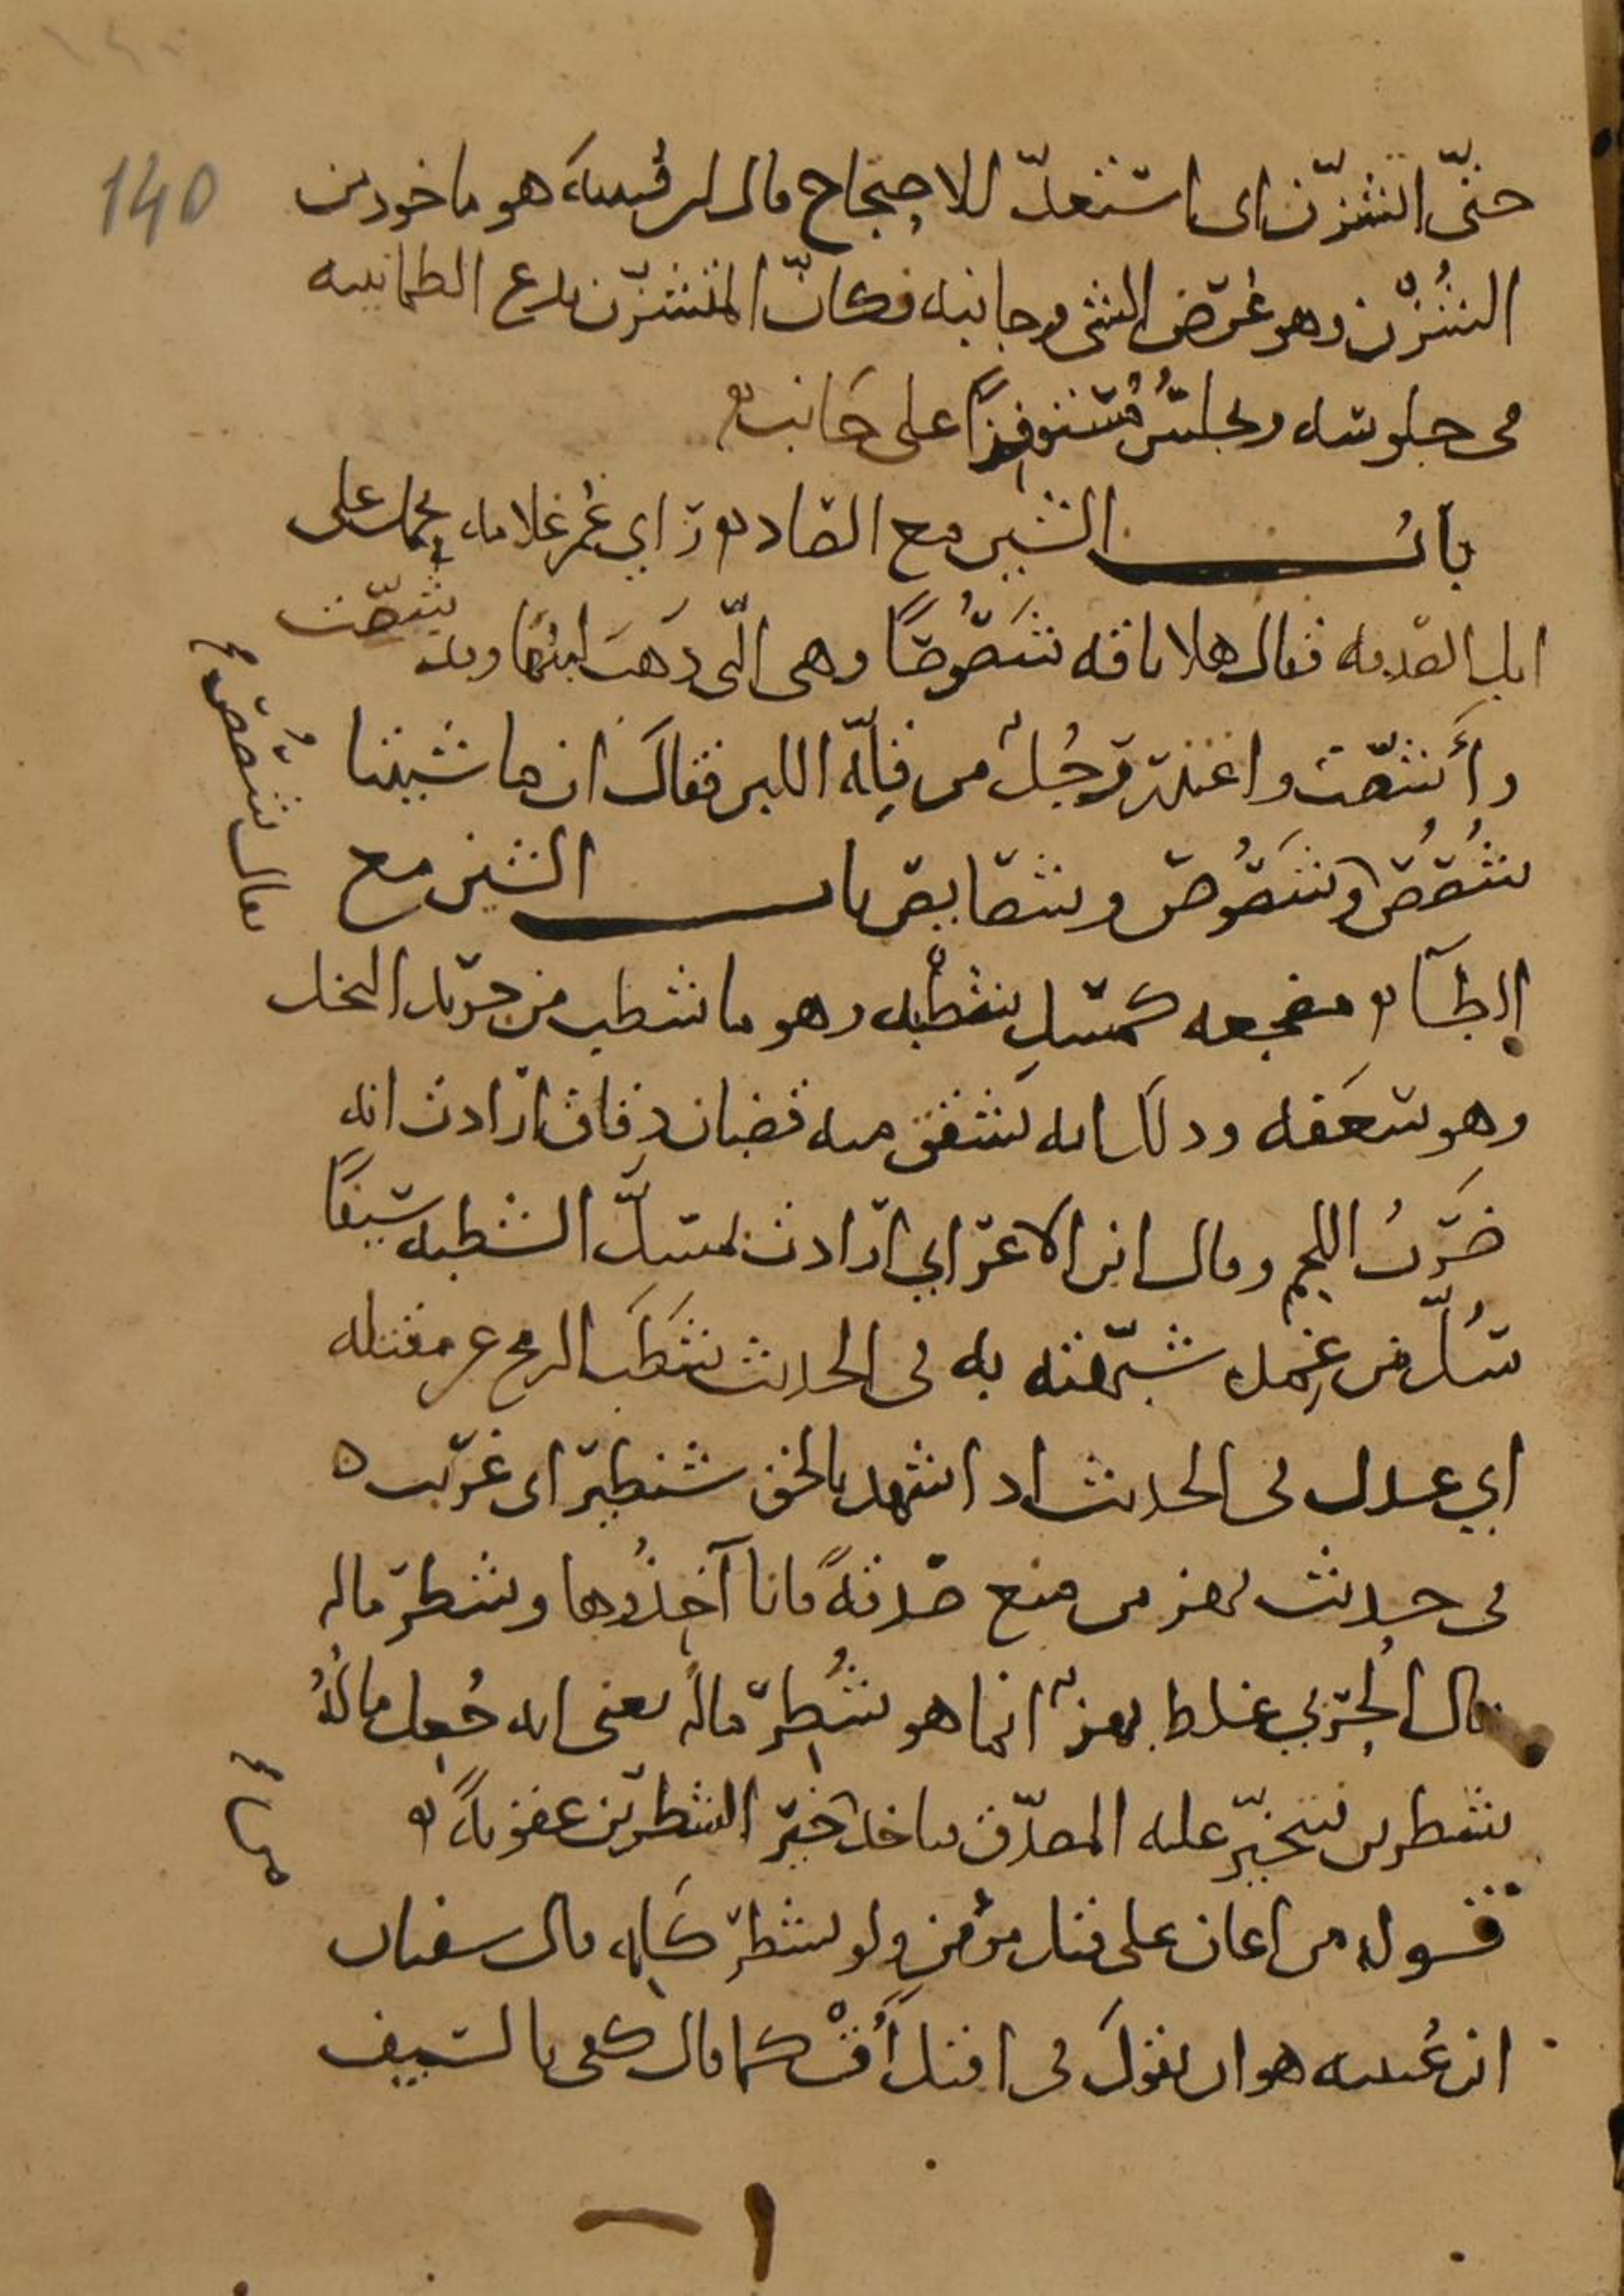 140
حتى التشزن اى استعد للاحتجاج قال ابن قتيبة هو ماخوذ من
الشزن وهو عرض الشئ وجانبه فكان المتشزن يدع الطمانينه
فى جلوسه ويجلس مستوفزا على جانب
باب الشين مع الصاد راي عمر غلاما يحمل على
ابل الصدقه فقال هلا ناقه شصوصا وهي التي ذهب لبنها وقد شصت
وأشصت واعتذر رجل من قلة اللبن فقال ان ماشيتنا
شصص
يقال شصص وشصوص وشصايص باب الشين مع
الطاء مضجعه كمسل شطبه وهو ما شطب من جريد النخل
وهو سعفه وذلك انه يشقق منه قضبان دقاق ارادت انه
ضرب اللحم وقال ابن الاعرابي ارادت بمسل الشطبه سيفا
سل من غمده شبهته به في الحديث شطب الرمح عن مقتله
اي عدل في الحديث اذ اشهد بالحق شطير اى غريب
في حديث بهز من منع صدقة فانا آخذوها وشطر ماله
قال الحربي غلط بهز انما هو شطر ماله يعنى انه جعل ماله
شطرين فيتخير عليه المصدق فياخذ خير الشطرين عقوبة
قوله من اعان على قتل مؤمن ولو بشطر كلمه قال سفيان
ابن عيينه هو ان يقول في اقتل أق كما قال كفى بالسيف